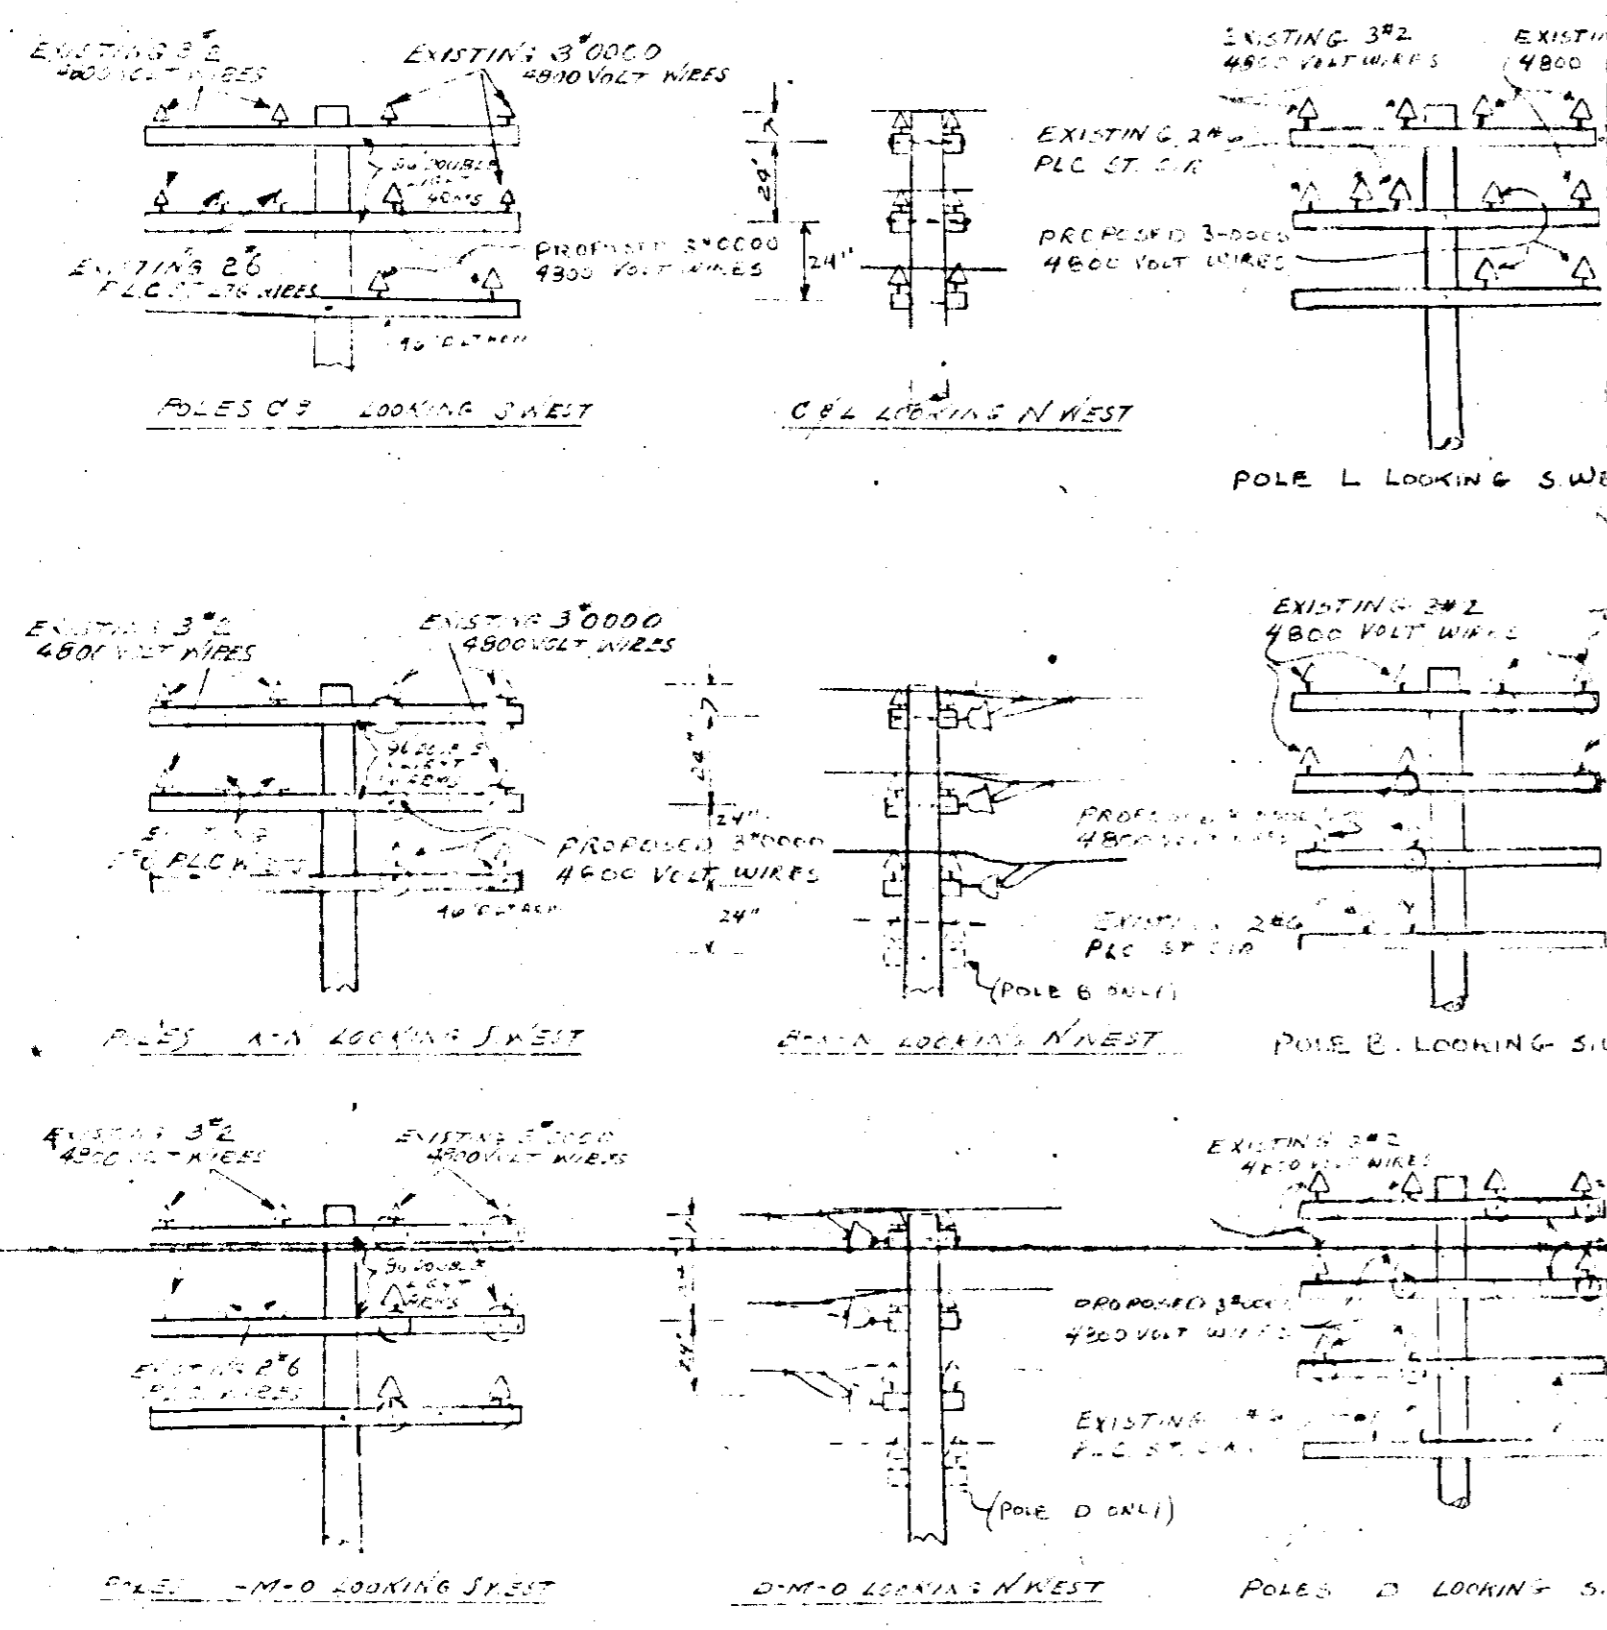 EXISTING 3#2
4800 VOLT WIRES
EXISTING 3#0000
4800 VOLT WIRES
96" DOUBLE
ARMS
PROPOSED 3#0000
4800 VOLT WIRES
EXISTING 2#6
WIRES
POLES C LOOKING S.WEST
7"
24"
24"
C & L LOOKING N WEST
EXISTING 3#2
4800 VOLT WIRES
4800
EXISTING 2#6
PLC ST. CIR
PROPOSED 3-0000
4800 VOLT WIRES
POLE L LOOKING S.WE
EXISTING 3#2
4800 VOLT WIRES
EXISTING 3#0000
4800 VOLT WIRES
ARMS
PLC WIRES
PROPOSED 3#0000
4600 VOLT WIRES
POLES K-N LOOKING S.WEST
7"
24"
24"
24"
(POLE B ONLY)
B-K-N LOOKING N'WEST
EXISTING 3#2
4800 VOLT WIRES
PROPOSED
4800 VOLT WIRES
EXISTING 2#6
PLC ST CIR
POLE B. LOOKING S.
EXISTING 3#2
4800 VOLT WIRES
EXISTING 3#0000
4800 VOLT WIRES
96" DOUBLE
ARMS
EXISTING 2#6
PLC WIRES
POLES -M-O LOOKING S.WEST
24"
24"
(POLE D ONLY)
D-M-O LOOKING N'WEST
EXISTING 3#2
4800 VOLT WIRES
PROPOSED 3#000
4800 VOLT WIRES
EXISTING #6
PLC ST. CIR
POLES D LOOKING S.